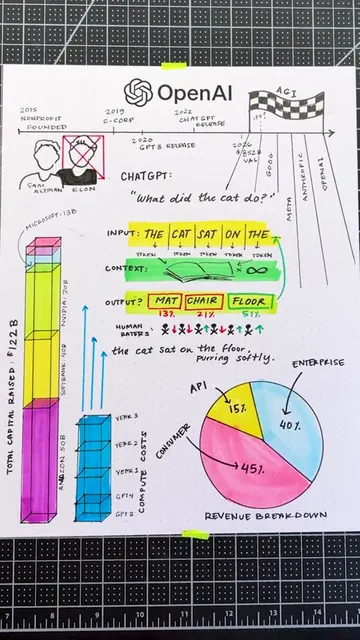 OpenAI
AGI
IPO?
2015
NONPROFIT
FOUNDED
2019
C-CORP
2022
CHATGPT
RELEASE
2020
GPT3 RELEASE
2026
$852B
VAL
GOOG
META
ANTHROPIC
OPENAI
SAM
ALTMAN
ELON
CHATGPT:
"what did the cat do?"
INPUT: THE CAT SAT ON THE
TOKEN TOKEN TOKEN TOKEN TOKEN
CONTEXT: ∞
OUTPUT? MAT CHAIR FLOOR
13% 21% 51%
HUMAN
RATERS:
the cat sat on the floor,
purring softly.
MICROSOFT: 13B
NVIDIA: 30B
SOFTBANK: 40B
AMAZON 50B
TOTAL CAPITAL RAISED: $122B
YEAR 3
YEAR 2
YEAR 1
GPT4
GPT3
COMPUTE COSTS
API
15%
ENTERPRISE
40%
CONSUMER
45%
REVENUE BREAKDOWN
7 8 9 10 11 12 13 14